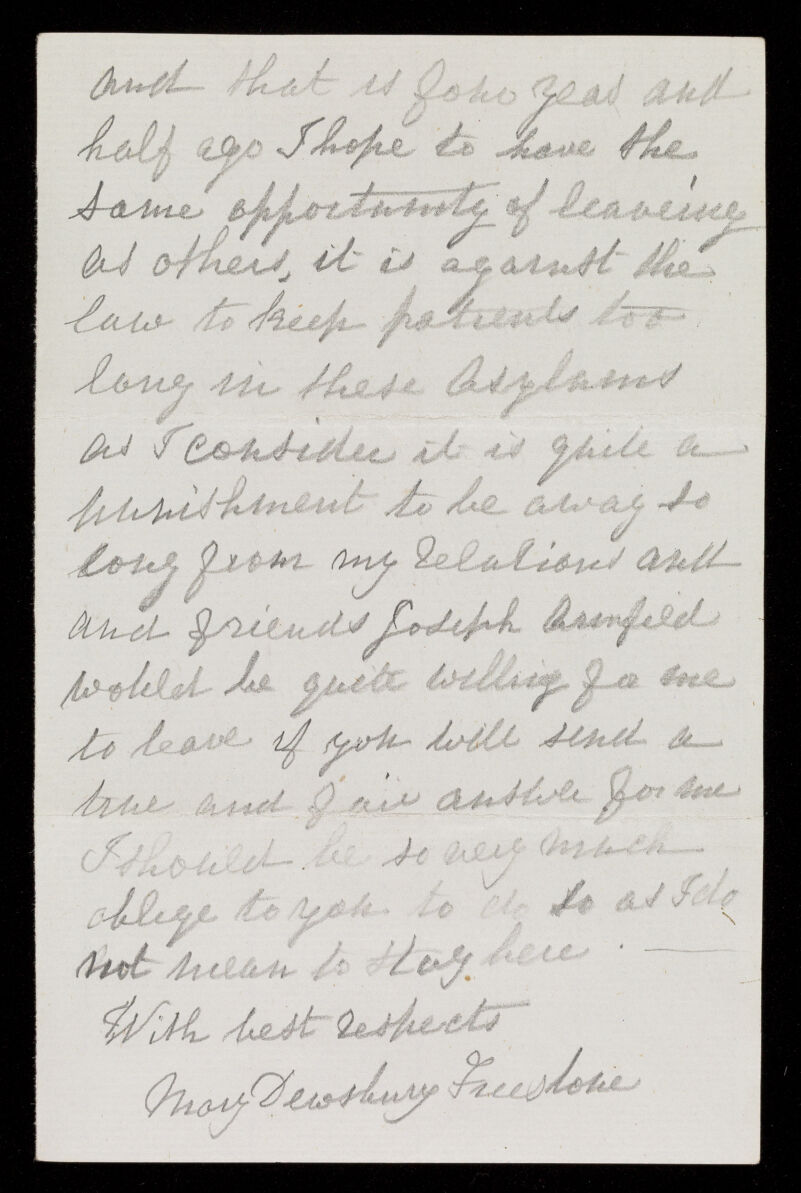 and that is four yeas and
half ago I hope to have the
same opportunity of leaveing
as others, it is against the
law to keep patients too
long in these Asylums
as I consider it is quite a
punishment to be away so
long from my relations and
and friends Joseph Armfield
would be quite willing for me
to leave if you will send a
true and fair answer for me
I should be so very much
oblige to you to do so as I do
not mean to stay here .
With best respects
Mary Dewsbury Freestone